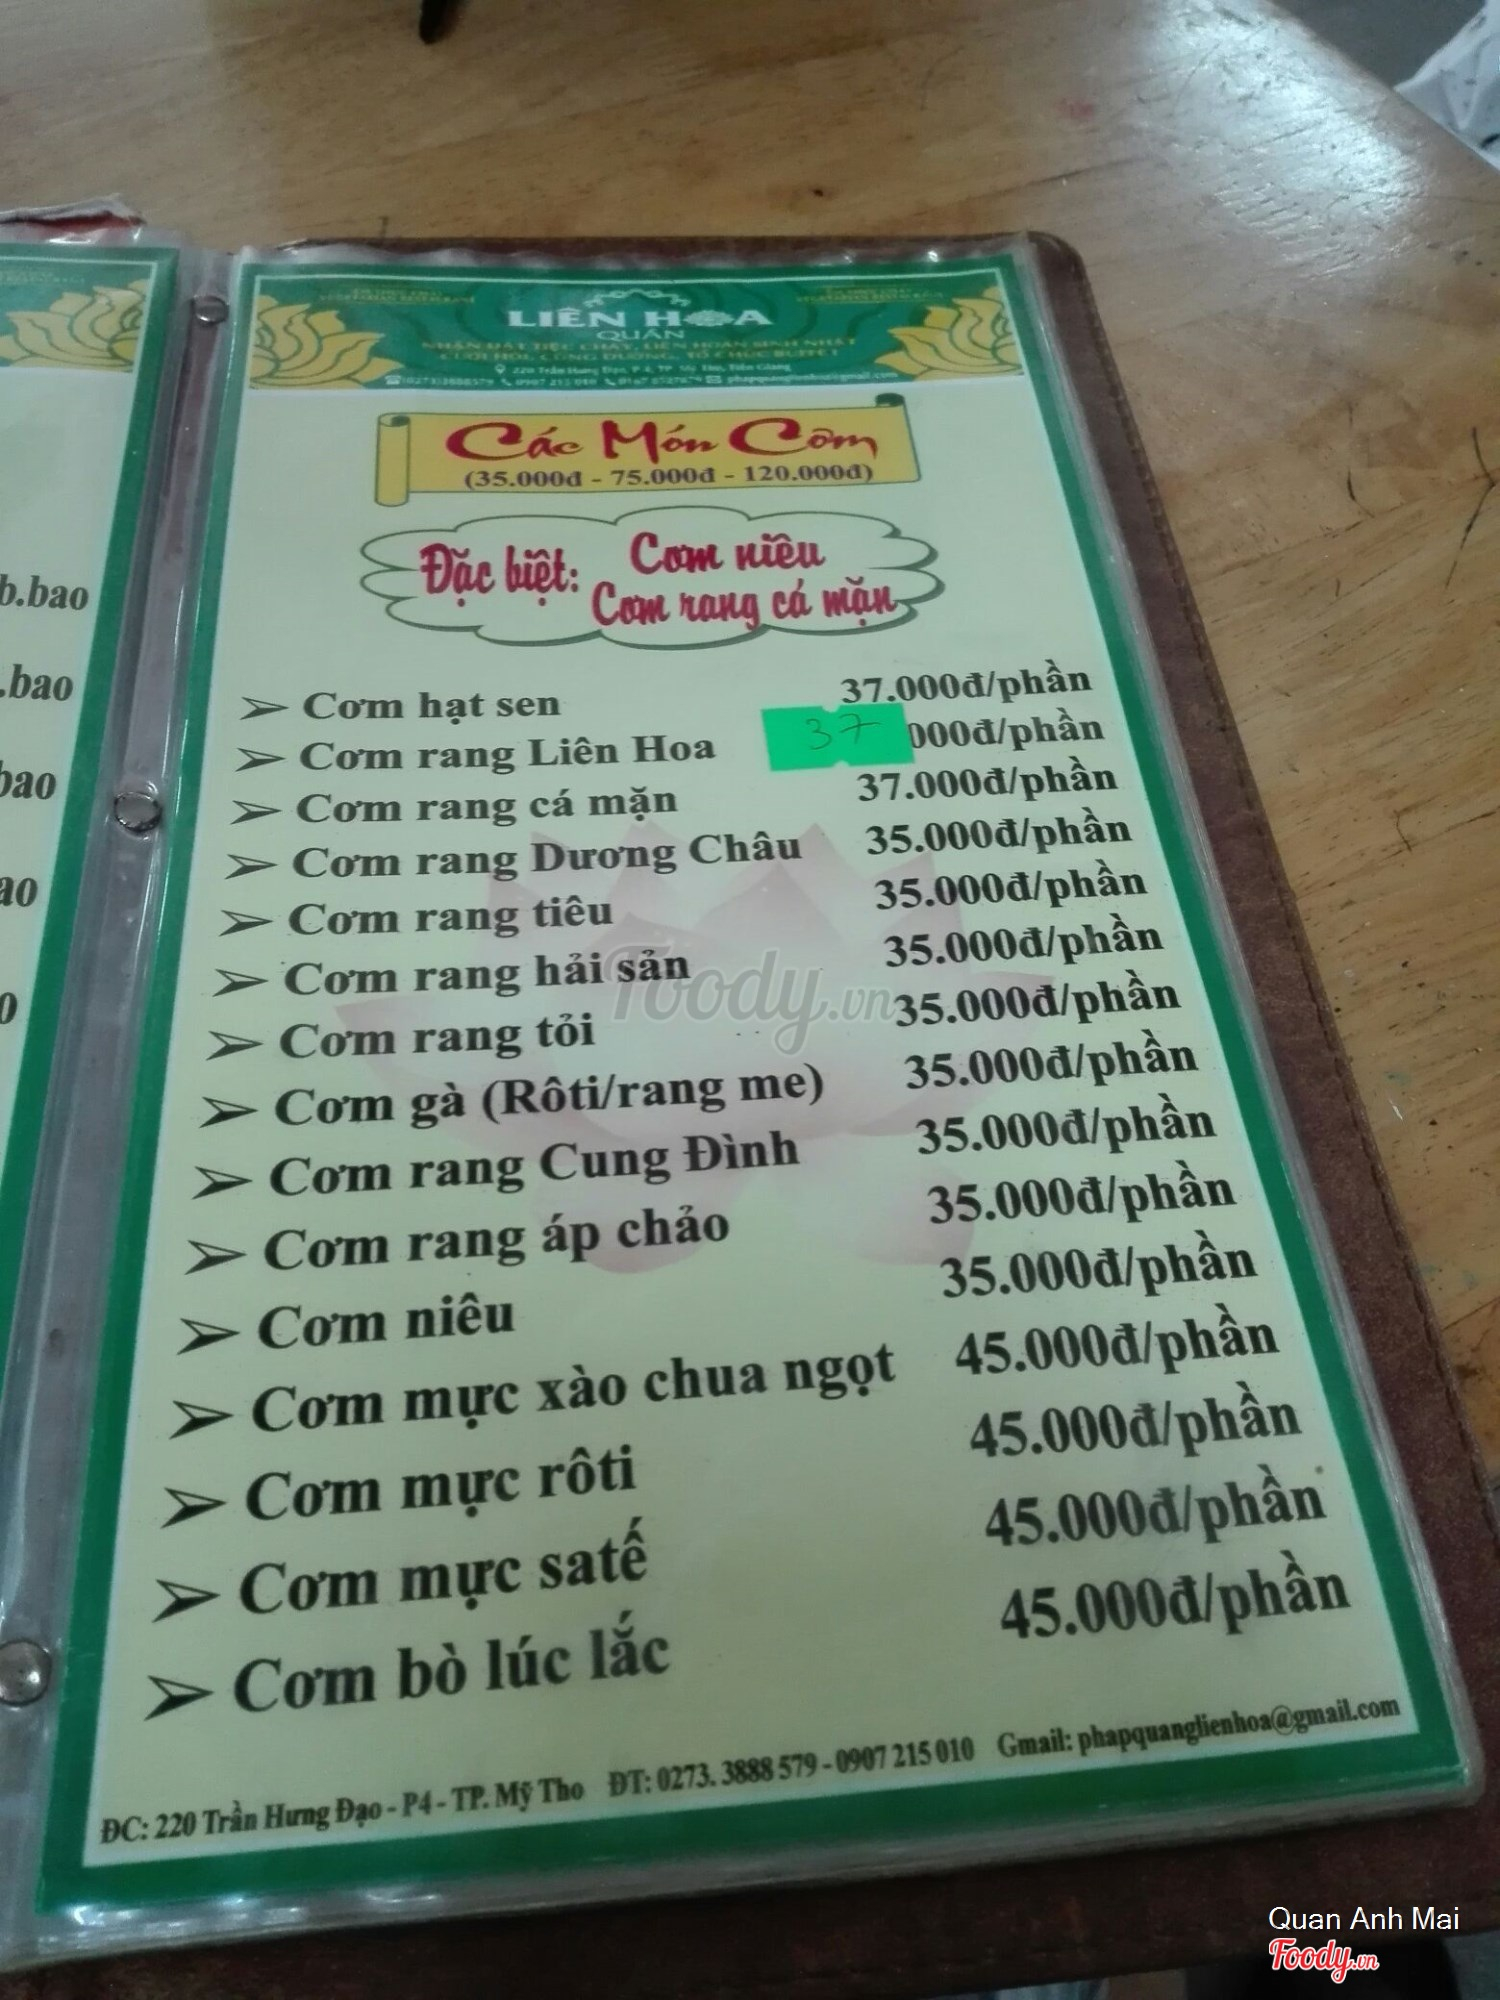 LIÊN HOA
QUÁN
NHẬN ĐẶT TIỆC CHAY, LIÊN HOAN SINH NHẬT
CƯỚI HỎI, CÚNG DƯỜNG, TỔ CHỨC BUFFET
220 Trần Hưng Đạo, P.4, TP. Mỹ Tho, Tiền Giang
02733888579 0907 215 010 phapquanglienhoa@gmail.com
Các Món Cơm
(35.000đ - 75.000đ - 120.000đ)
Đặc biệt: Cơm niêu
Cơm rang cá mặn
➢ Cơm hạt sen 37.000đ/phần
➢ Cơm rang Liên Hoa 37 000đ/phần
➢ Cơm rang cá mặn 37.000đ/phần
➢ Cơm rang Dương Châu 35.000đ/phần
➢ Cơm rang tiêu 35.000đ/phần
➢ Cơm rang hải sản 35.000đ/phần
➢ Cơm rang tỏi 35.000đ/phần
➢ Cơm gà (Rôti/rang me) 35.000đ/phần
➢ Cơm rang Cung Đình 35.000đ/phần
➢ Cơm rang áp chảo 35.000đ/phần
➢ Cơm niêu 35.000đ/phần
➢ Cơm mực xào chua ngọt 45.000đ/phần
➢ Cơm mực rôti 45.000đ/phần
➢ Cơm mực satế 45.000đ/phần
➢ Cơm bò lúc lắc 45.000đ/phần
ĐC: 220 Trần Hưng Đạo - P4 - TP. Mỹ Tho ĐT: 0273. 3888 579 - 0907 215 010 Gmail: phapquanglienhoa@gmail.com
b.bao
.bao
bao
ao
0
Foody.vn
Quan Anh Mai
Foody.vn